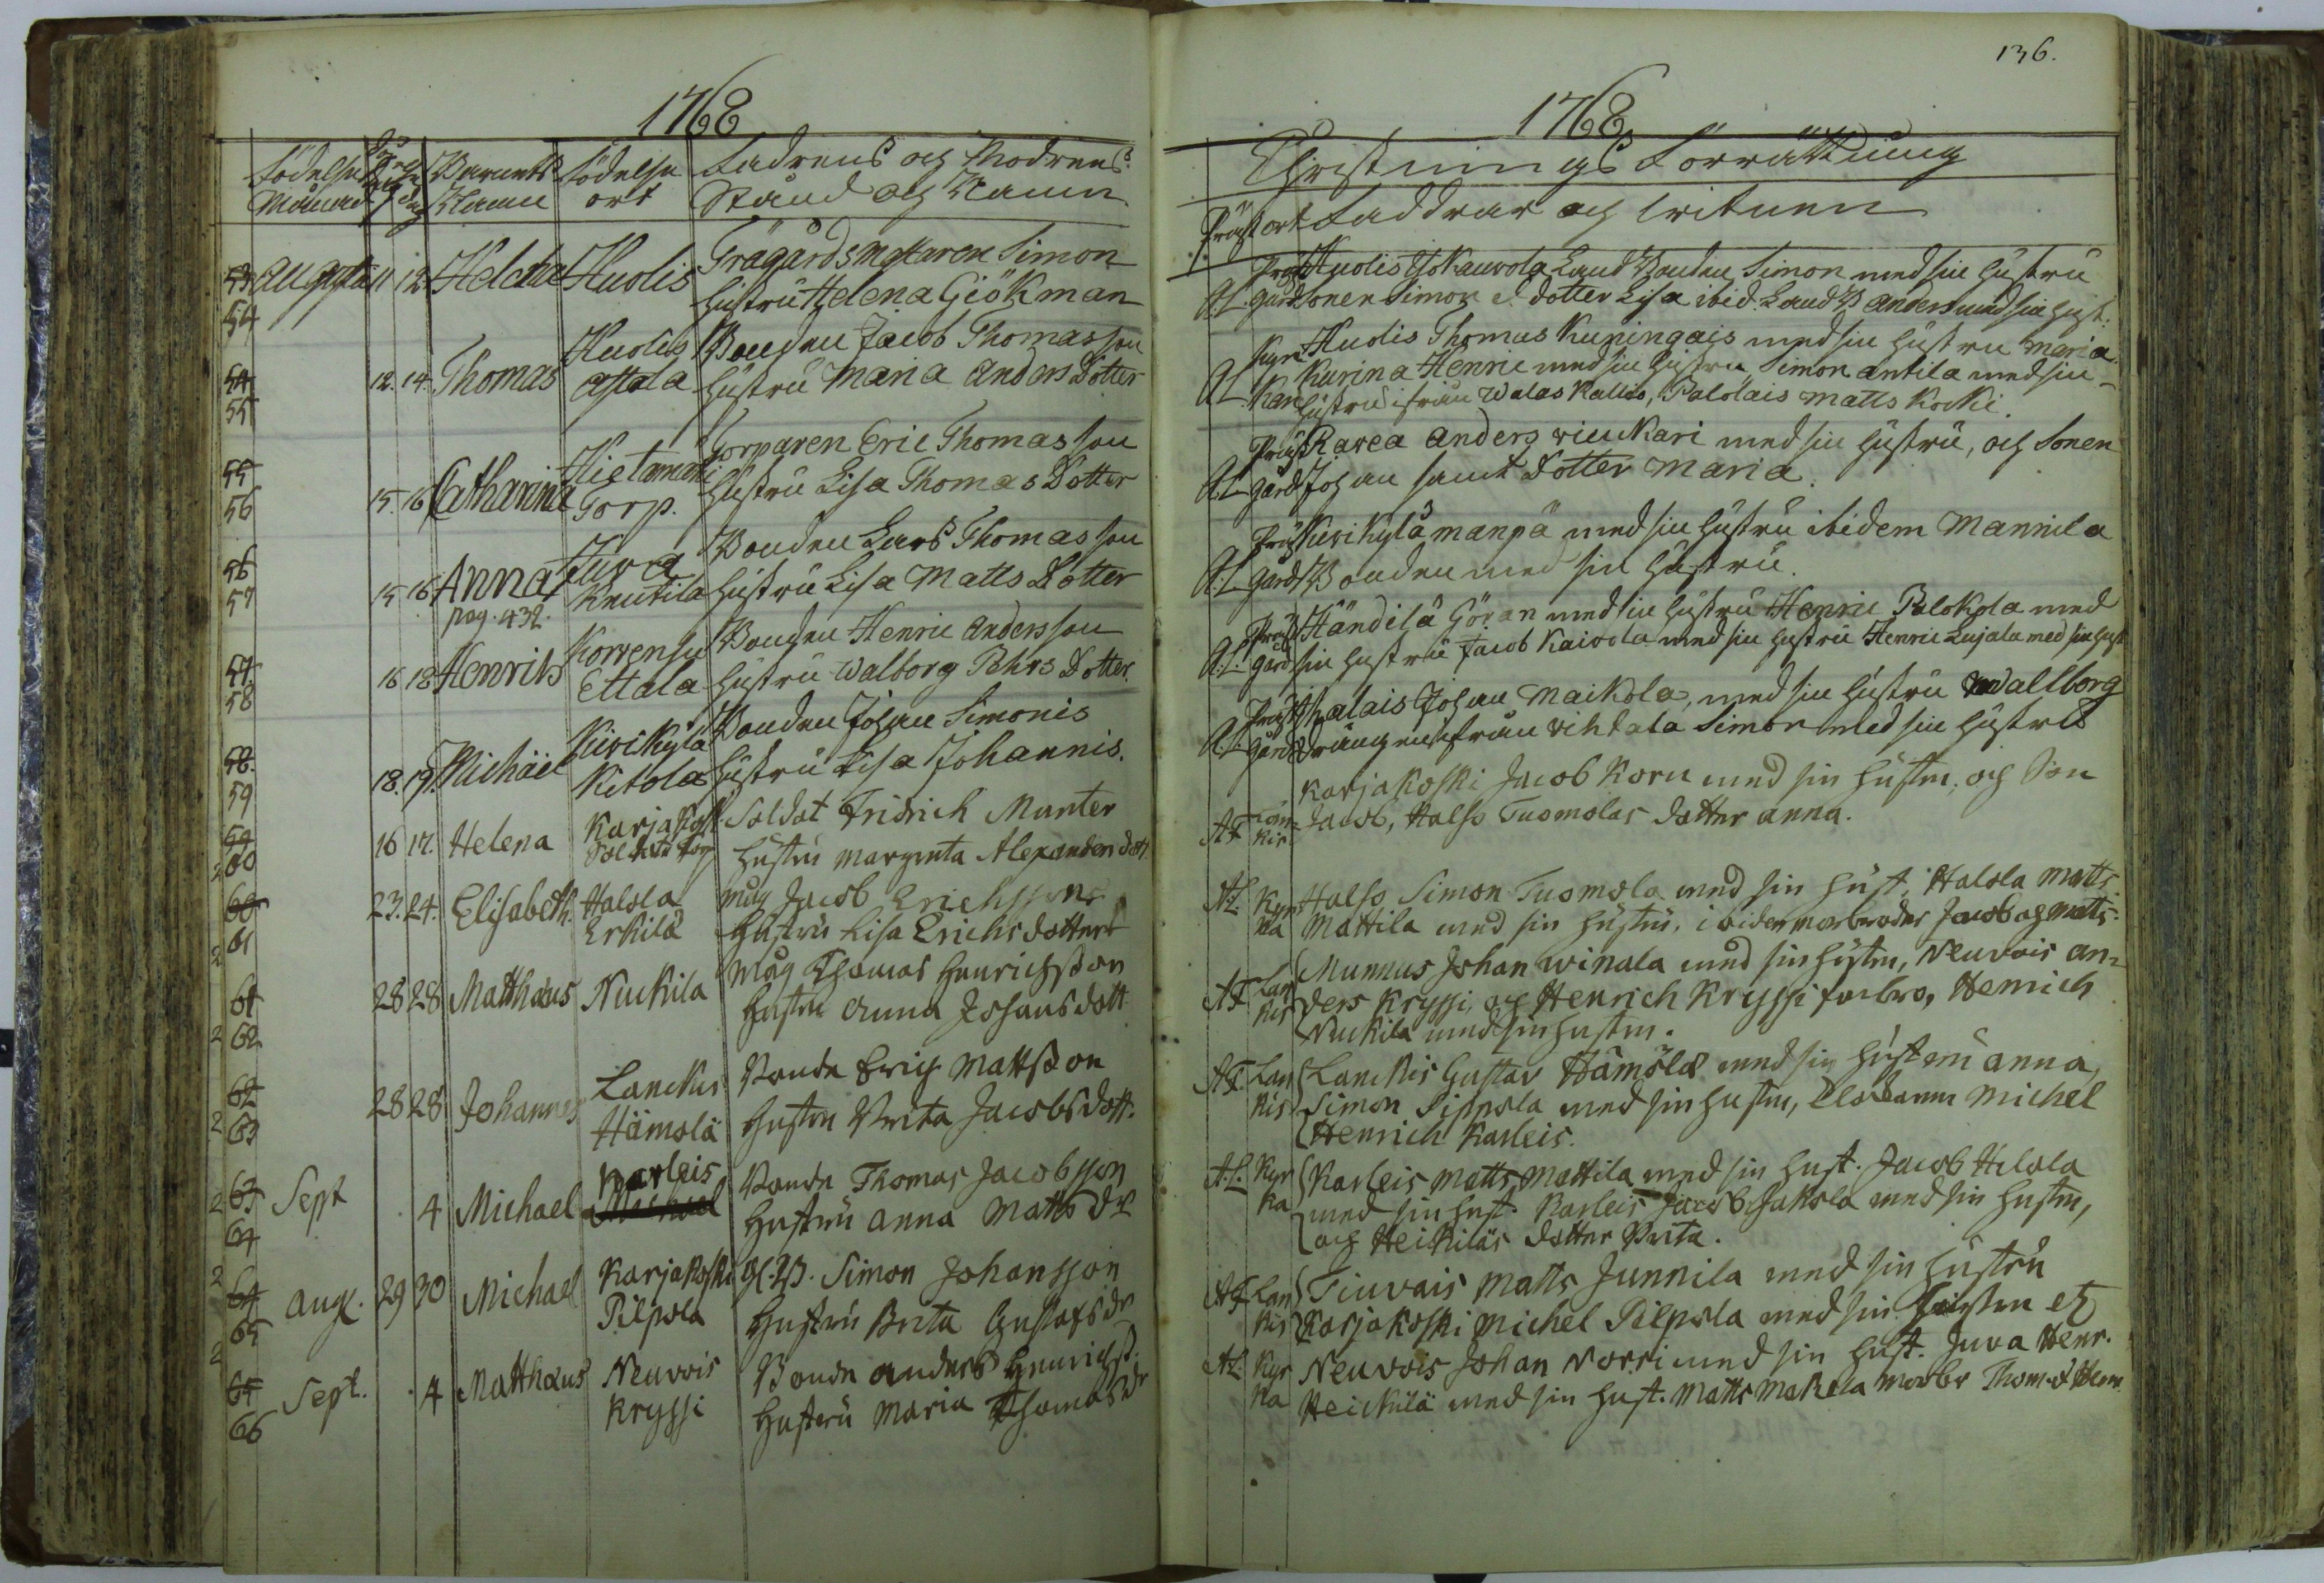 1768
Födelse Månad
Barnets Namn
Födelse ort
Fadrens och Modrens Stånd och Namn
53 Augusti 11 12 Helena Huolis Trägårdsmästaren Simon
54 hustru Helena Giökman
Huolis Bonden Jacob Thomasson
54 12. 14. Thomas Astala hustru Maria Anders Dotter
55
Hietamäki Torparen Eric Thomasson
55 15. 16 Catharina Torp. hustru Lisa Thomas Dotter
56
Juva Bonden Lars Thomasson
56 15 16 Anna Knutila hustru Lisa Matts Dotter
57 pag. 432.
Korvensu Bonden Henric Andersson
57. 16 18 Henrik Ettala hustru Walborg Pehrs Dotter.
58
Kirikylä Bonden Johan Simonis
58. 18. 19. Michäel Kitola hustru Lisa Johannis.
59
Karjakoski Soldat Fridrich Munter
59 16 17. Helena hustru Margreta Alexanders dott
60
60 23. 24. Elisabeth. Halola Måg Jacob Erichssons
61 Erkilä hustru Lisa Erichs dotter
Måg Thomas Henrichsson
61 28 28 Matthæus Nuckila hustru Anna Johans dott
62
Lanckis Bonde Erich Mattsson
62 28 28 Johannes Hämölä hustru Brita Jacobs dott.
63
Karleis Bonde Thomas Jacobsson
63 Sept 4 Michael hustru Anna Matts dr
64
64 Aug. 29 30 Michael Karjakoski Simon Johansson
65 Pilpola hustru Brita Gustafs dr
65 Sept. 4 Matthæus Neuvois Bonde Anders Henrichss.
66 Kryssi hustru Maria Thomas dr
136.
1768
Christnings Förrättning
Präst ort Faddrar och witnen
Huolis Jokauvola Land Bonden Simon med sin hustru
A:L. gård sonen Simon dotter Lisa ibid. Land B Anders med sin hust.
Kyr Huolis Thomas Kuningais med sin hustru Maria
A:L Kurina Henric med sin hustru Simon Antila med sin
Kan hustru ifrån Walaskallio, Palolais Matts Kocki.
Präst Ravea Anders vienkari med sin hustru, och Sonen
A:L gård Johan samt Dotter Maria.
Präst Kirikylä manpä med sin hustru ibidem Mannila
A:L gård Bonden med sin hustru.
Präst Händilä Göran med sin hustru Henric Palokola med
A:L. gård sin hustru Jacob Kaivola med sin hustru Henric Lujala med sin hust
Präst Johan Maikola, med sin hustru Wallborg
A:L. gård drängen ifrån vihtala Simon med sin hustru
Karjakoski Jacob Koru med sin hustru, och Son
AF Jacob, Halso Tuomolas dotter Anna.
A:L. Kyr Halso Simon Tuomola med sin hust. Halola Matts
ka Mattila med sin hustru, ibidem morbroder Jacob och Matts.
Munnus Johan winala med sin hustru, Neuvois An=
AF Lan ders Kryssi, och Henrich Kryssi farbro, Henrich
kis Nuckila med sin hustru.
AF. Lan Lanckis Gustav Hämölä med sin hustru Anna
kis Simon Sippola med sin hustru, Michel
Henrich Karleis.
A.L. Kyr Karleis Matts Mattila med sin hust. Jacob Hilola
ka med sin hust. Karleis Jacob Jakola med sin hustru,
och Heikiläs dotter Brita.
AF Lan Tiuvais Matts Junnila med sin hustru
kis Karjakoski Michel Pilpola med sin hustru etc
AL. Kyr Neuvois Johan Norri med sin hust. Juva Henr.
ka Heickilä med sin hust. Matts Makela morbr Thom. d Hem